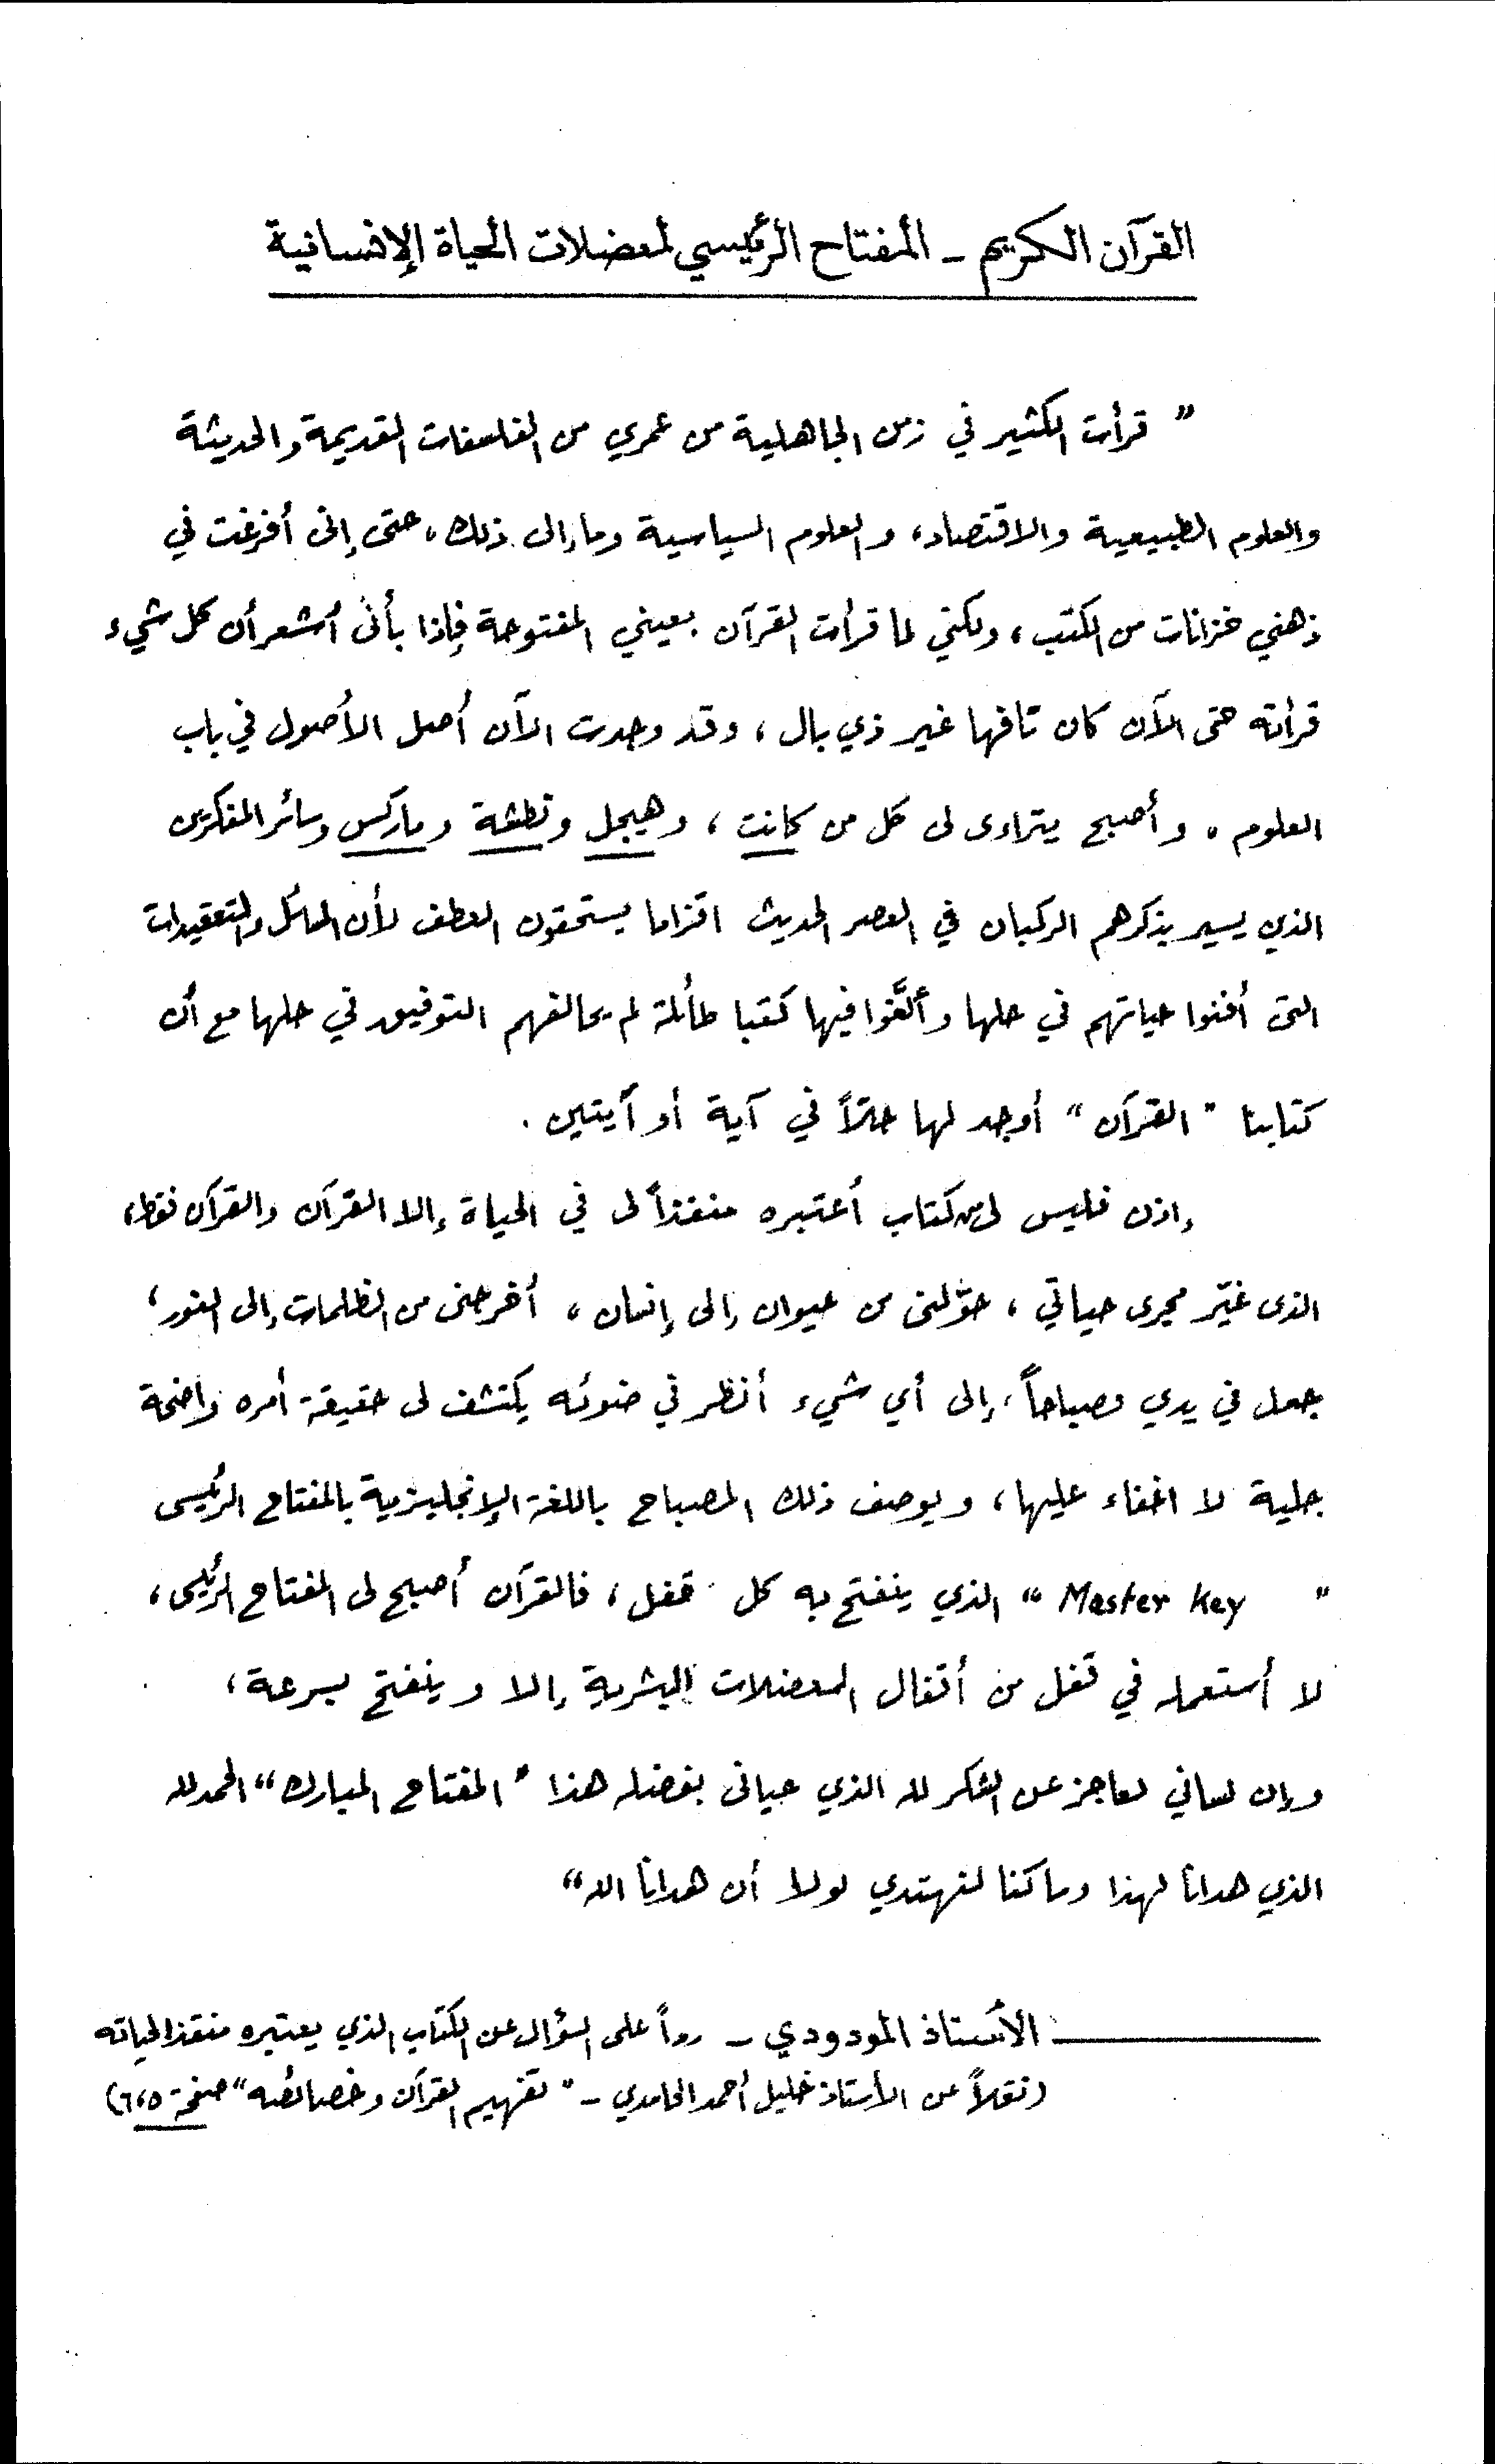 القرآن الكريم - المفتاح الرئيسي لمعضلات الحياة الإنسانية
" قرأت الكثير في زمن الجاهلية من عمري من الفلسفات القديمة والحديثة
والعلوم الطبيعية والاقتصاد، والعلوم السياسية وما إلى ذلك، حتى إنى أفرغت في
ذهني خزانات من الكتب، ولكني لما قرأت القرآن بعيني المفتوحة فإذا بأنى أشعر أن كل شيء
قرأته حتى الآن كان تافها غير ذي بال، وقد وجدت الآن أصل الأصول في باب
العلوم. وأصبح يتراءى لى كل من كانت، وهيجل ونطشة وماركس وسائر المفكرين
الذي يسير بذكرهم الركبان في العصر الحديث اقزاما يستحقون العطف لأن المسائل والتعقيدات
التى أفنوا حياتهم في حلها وألَّفوا فيها كتبا طائلة لم يحالفهم التوفيق في حلها مع أن
كتابنا " القرآن " أوجد لها حلاً في آية أو آيتين .
وإذن فليس لى من كتاب أعتبره منقذاً لى في الحياة إلا القرآن والقرآن فقط،
الذى غيّر مجرى حياتي، حوّلنى من حيوان إلى إنسان، أخرجنى من الظلمات إلى النور،
جعل في يدي مصباحاً، إلى أي شيء أنظر في ضوئه يكتشف لى حقيقة أمره واضحة
جلية لا اخفاء عليها، ويوصف ذلك المصباح باللغة الإنجليزية بالمفتاح الرئيسى
" Master Key " الذي ينفتح به كل قفل، فالقرآن أصبح لى المفتاح الرئيسى،
لا أستعمله في قفل من أقفال المعضلات البشرية إلا وينفتح بسرعة،
وإن لساني لعاجز عن الشكر لله الذي حبانى بفضله هذا " المفتاح المبارك " الحمد لله
الذي هدانا لهذا وما كنا لنهتدي لولا أن هدانا الله "
الأستاذ المودودي - رداً على السؤال عن الكتاب الذي يعتبره منقذا لحياته
(نقلاً عن الأستاذ خليل أحمد الحامدي - " تفهيم القرآن وخصائصه " صفحة ٦،٥)